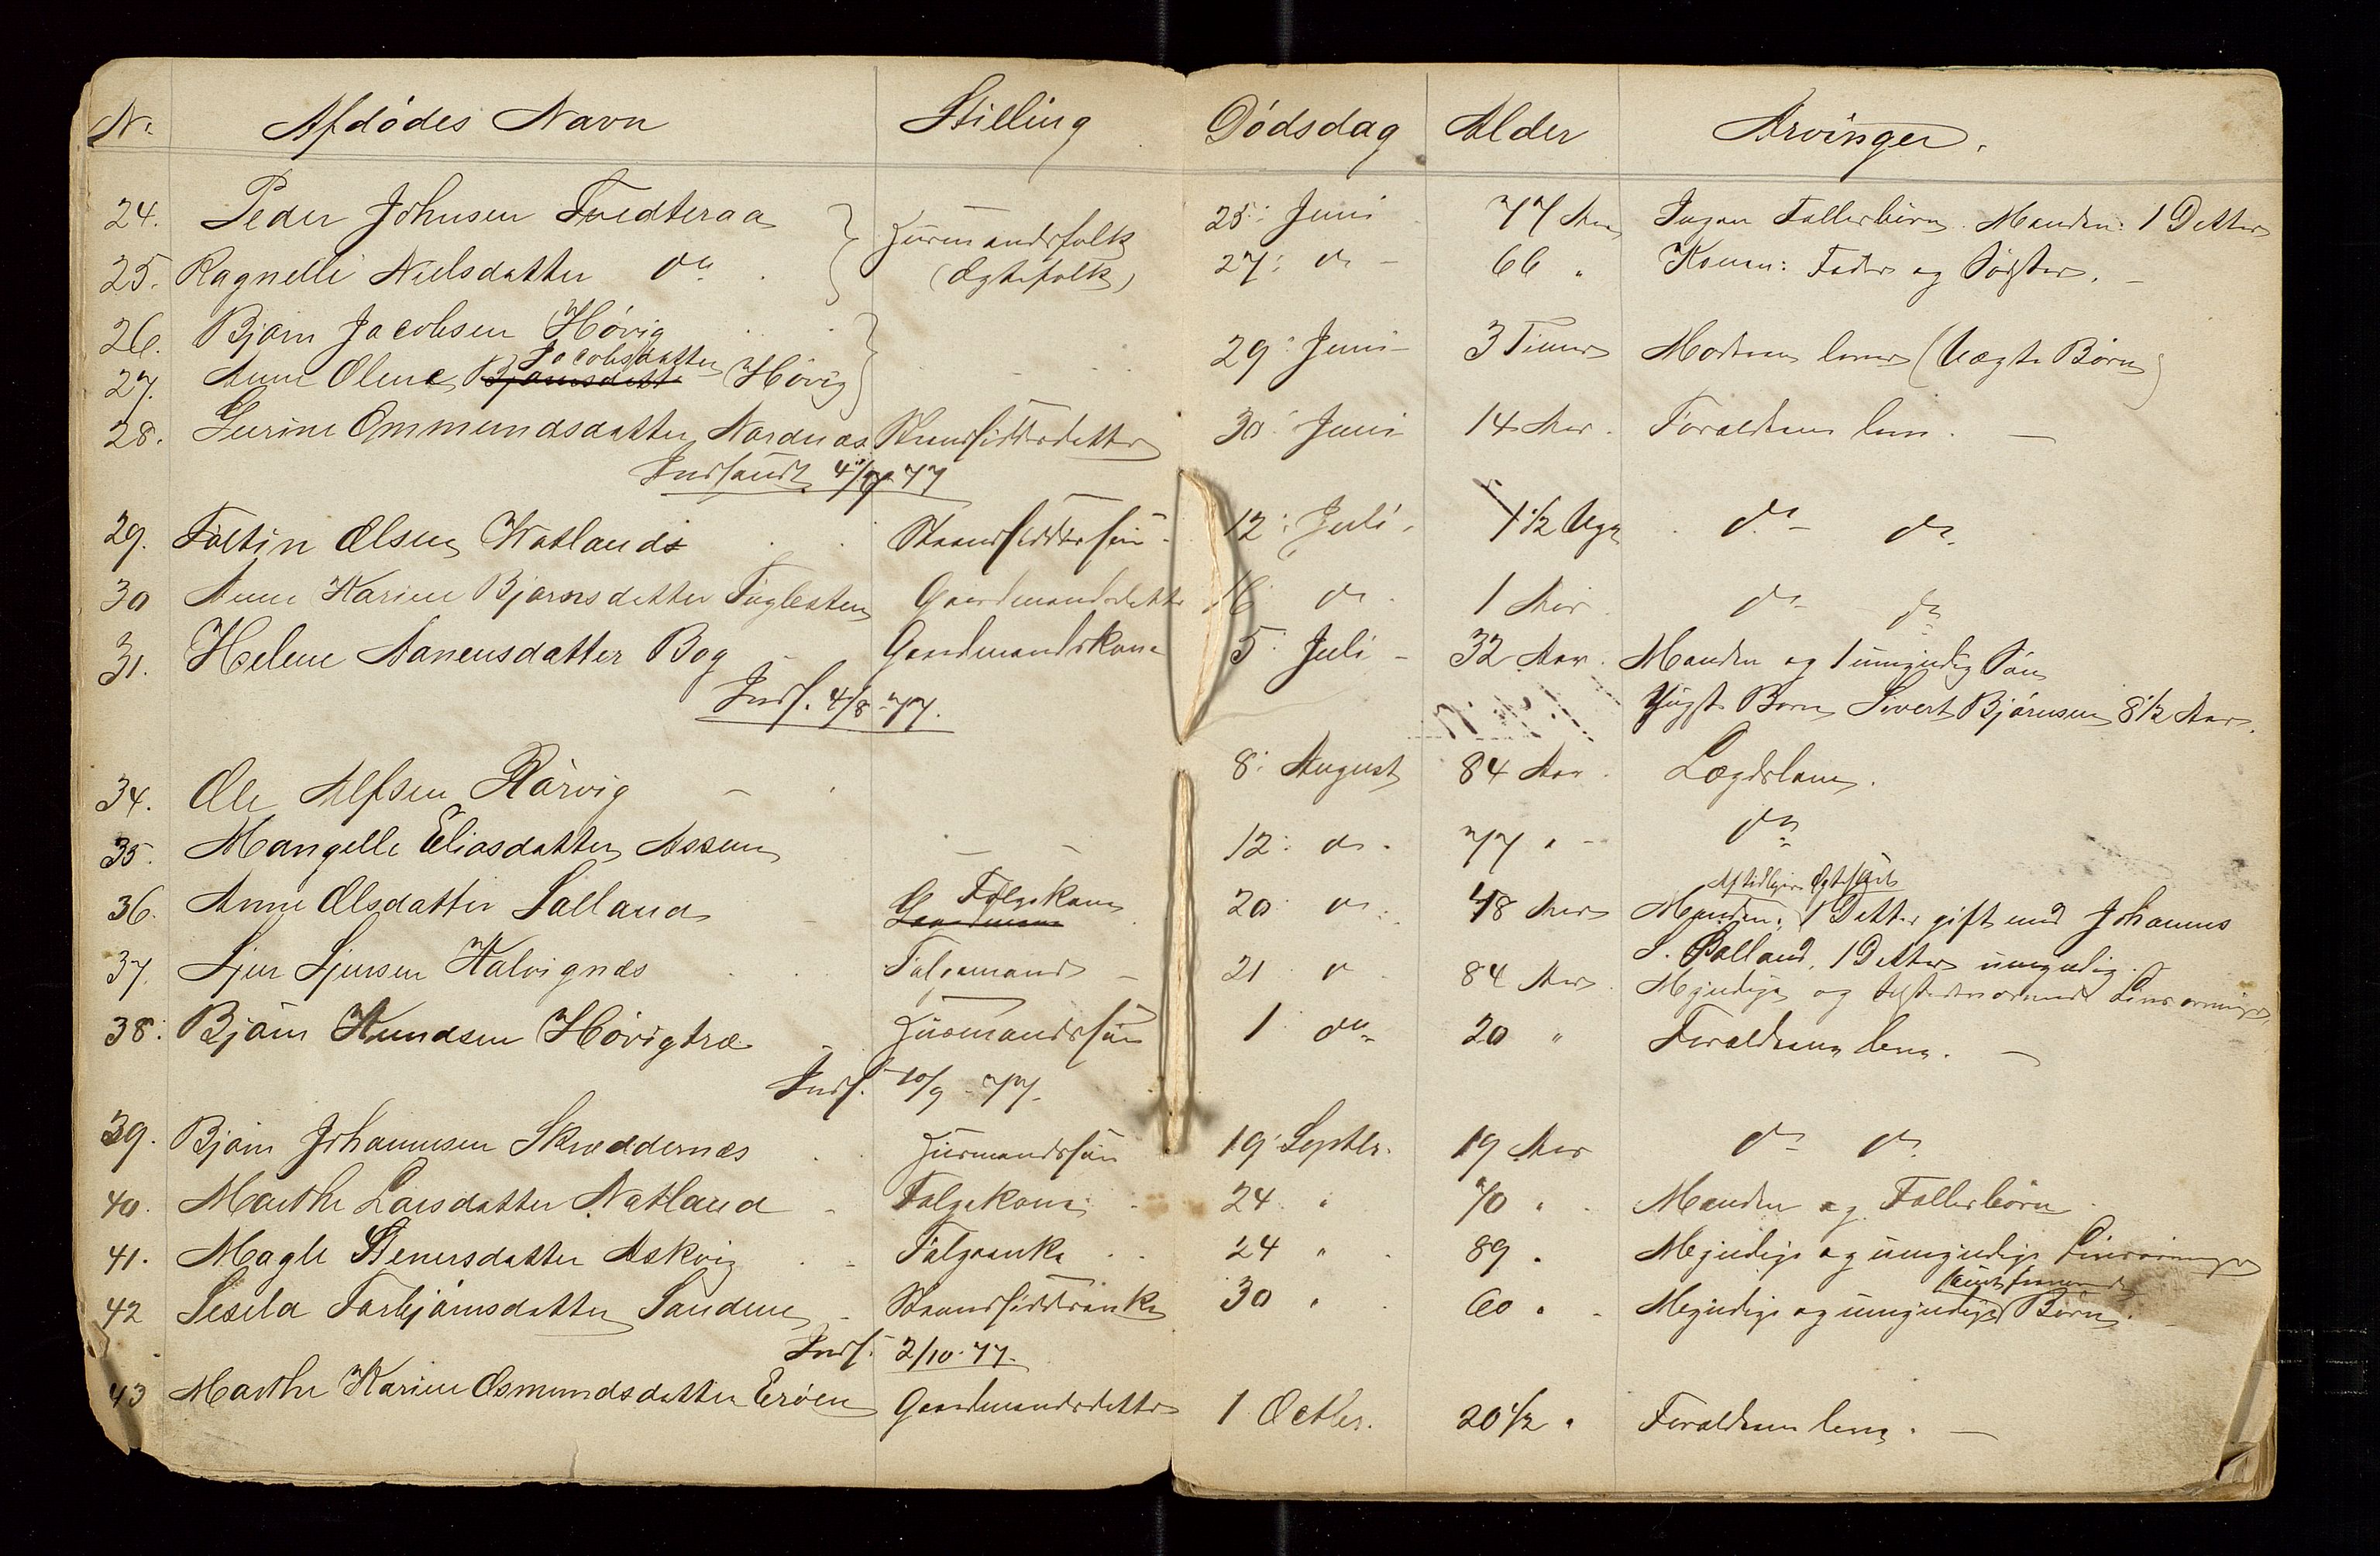 Nr. Afdødes Navn Stilling Dødsdag Alder Arvinger.
24. Peder Johnsen Tvedteraa Husmandsfolk 25: Juni 77 Aar Ingen Fællesbørn. Manden: 1 Datter
25. Ragnelle Nielsdatter do (Ægtefolk) 27: do 66 " Konen: Fader og Søster.
26. Bjørn Jacobsen Høvig 29: Juni 3 Timer Moderen lever (Uægte Børn)
27. Anne Oline Bjørnsdatter Jacobsdatter Høvig
28. Gurine Ommundsdatter Nordnæs Strandsidderdatter 30: Juni 14 Aar. Forældrene leve.
Indsendt 4/7 77
29. Tøltin Olsen Watlands Strandsiddersøn 12: Juli 1 1/2 Uge do do
30 Anne Karine Bjørnsdatter Fuglesteen Gaardmandsdatter 16 do 1 Aar do do
31. Helene Aanensdatter Bog Gaardmandskone 5: Juli 32 Aar. Manden og 1 umyndig Søn
Inds. 4/8 77. Yngste Barn Sivert Bjørnsen 8 1/2 Aar.
34. Ole Alfsen Rørvig 8: August 84 Aar Lægdslem.
35. Mangelle Eliasdatter Assem 12: do 77 " do
36. Anne Olsdatter Salland Gaardmans Følgekone 20: do 48 Aar Manden; Af tidligere Ægteskab 1 Datter gift med Johannes
S. Salland, 1 Datter umyndig.
37. Sjur Sjursen Halvignæs Følgemand 21 do 84 Aar Myndige og tilstedeværende Livsarvinger.
38: Bjørn Knudsen Høvigtræ Husmandssøn 1 do 20 " Forældrene leve.
Inds. 10/9 77.
39. Bjørn Johannesen Skræddernæs Husmandssøn 19: Septbr. 19 Aar do do
40. Marthe Larsdatter Natland Følgekone 24 " 70 " Manden og Fællesbørn
41. Magle Stenersdatter Askvig Følgeenke 24 " 89 " Myndige og umyndige Livsarvinger
42 Sesela Torbjørnsdatter Sandene Strandsidderenke 30 " 60 " Myndige og umyndige Børn.
Inds. 2/10 77.
43 Marthe Karine Osmundsdatter Erøen Gaardmandsdatter 1 Octbr. 20 1/2 " Forældrene leve.